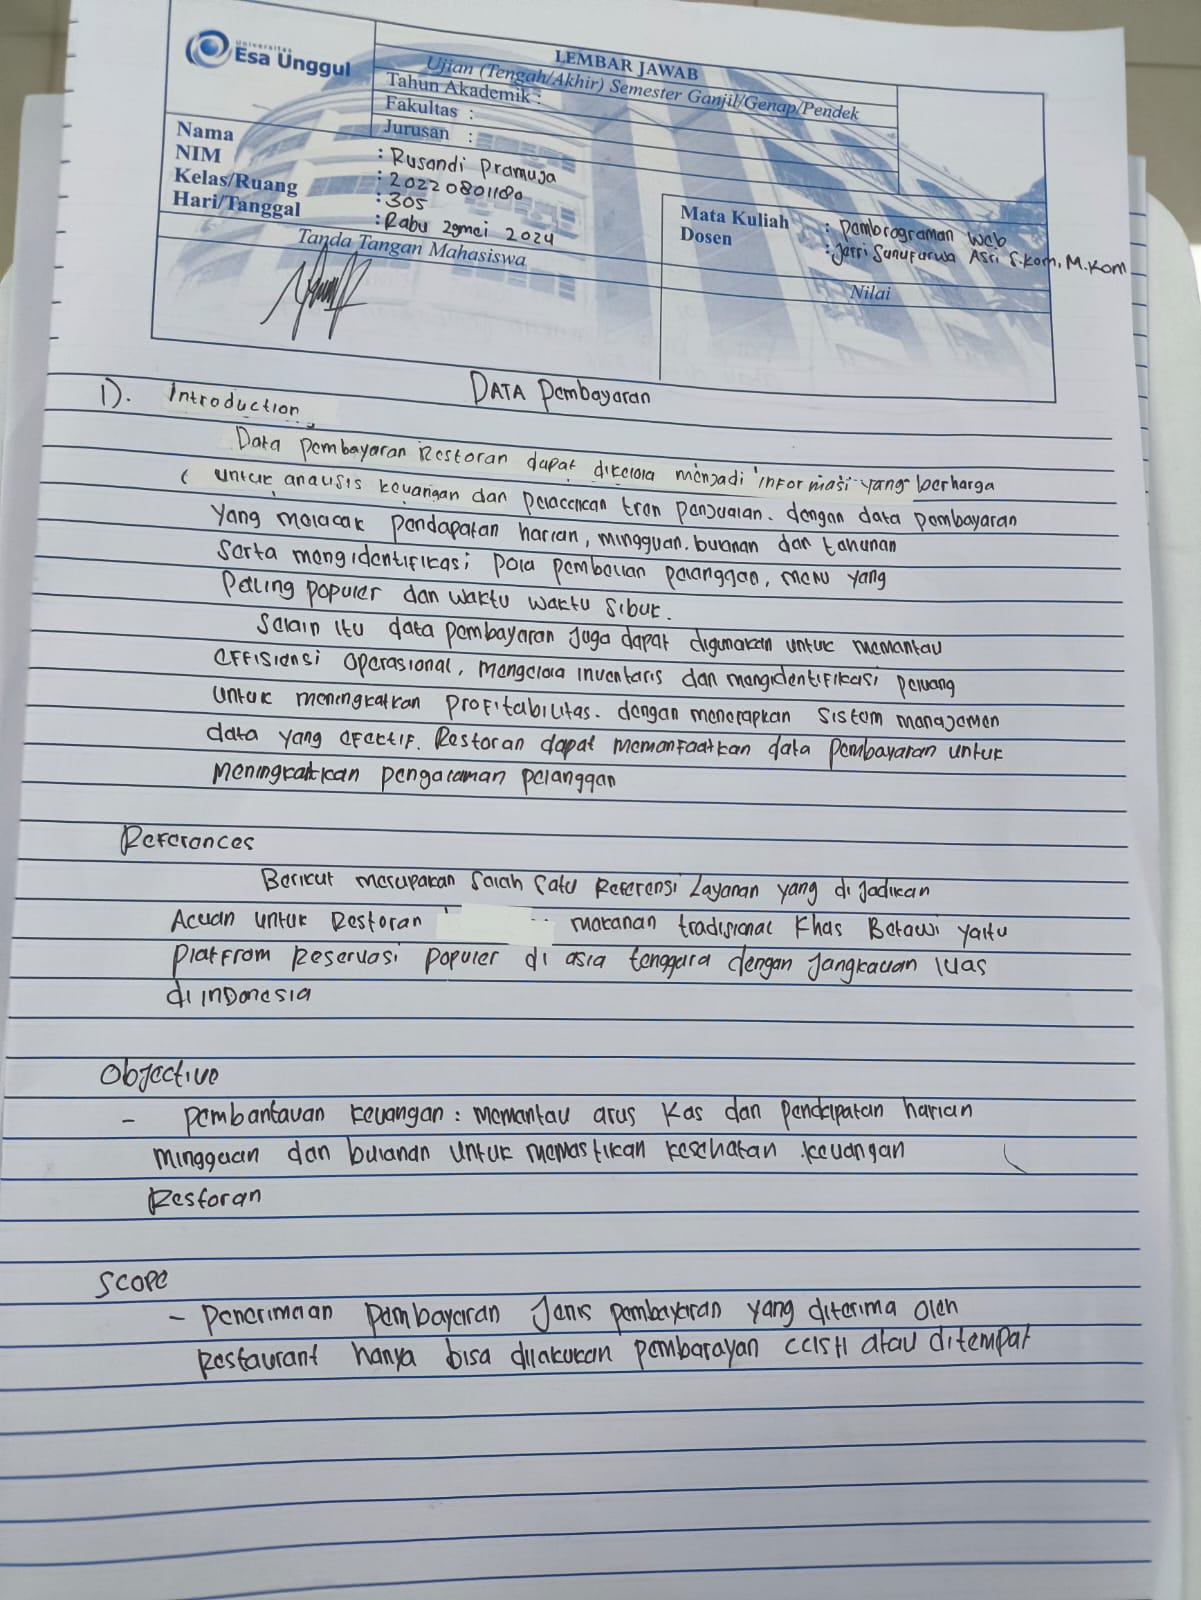 Universitas
Esa Unggul
LEMBAR JAWAB
Ujian (Tengah/Akhir) Semester Ganjil/Genap/Pendek
Tahun Akademik :
Fakultas :
Jurusan :
Nama : Rusandi Pramuja
NIM : 20220801180
Kelas/Ruang : 305
Hari/Tanggal : Rabu 29mei 2024
Mata Kuliah : Pembrograman Web
Dosen : Jefri Sunufurwa Asri S.Kom, M.Kom
Tanda Tangan Mahasiswa
Nilai
DATA Pembayaran
1). Introduction
Data pembayaran Restoran dapat dikelola menjadi informasi yang berharga
untuk analisis keuangan dan pelacakan tren penjualan. dengan data pembayaran
Yang melacak pendapatan harian, mingguan. bulanan dan tahunan
Serta mengidentifikasi pola pembelian pelanggan, menu yang
Paling populer dan waktu waktu sibuk.
Selain itu data pembayaran juga dapat digunakan untuk memantau
effisiensi operasional, mengelola inventaris dan mengidentifikasi peluang
untuk meningkatkan profitabilitas. dengan menerapkan sistem manajemen
data yang efektif. Restoran dapat memanfaatkan data pembayaran untuk
Meningkatkan pengalaman pelanggan
References
Berikut merupakan salah satu Referensi Layanan yang di jadikan
Acuan untuk Restoran makanan tradisional khas Betawi yaitu
Platfrom Reservasi populer di asia tenggara dengan jangkauan luas
di INDonesia
Objective
- Pembantauan keuangan : memantau arus kas dan pendapatan harian
mingguan dan bulanan untuk memastikan kesehatan keuangan
Restoran
SCOPE
- Penerimaan pembayaran Jenis pembayaran yang diterima oleh
Restaurant hanya bisa dilakukan pembarayan CASH atau ditempat